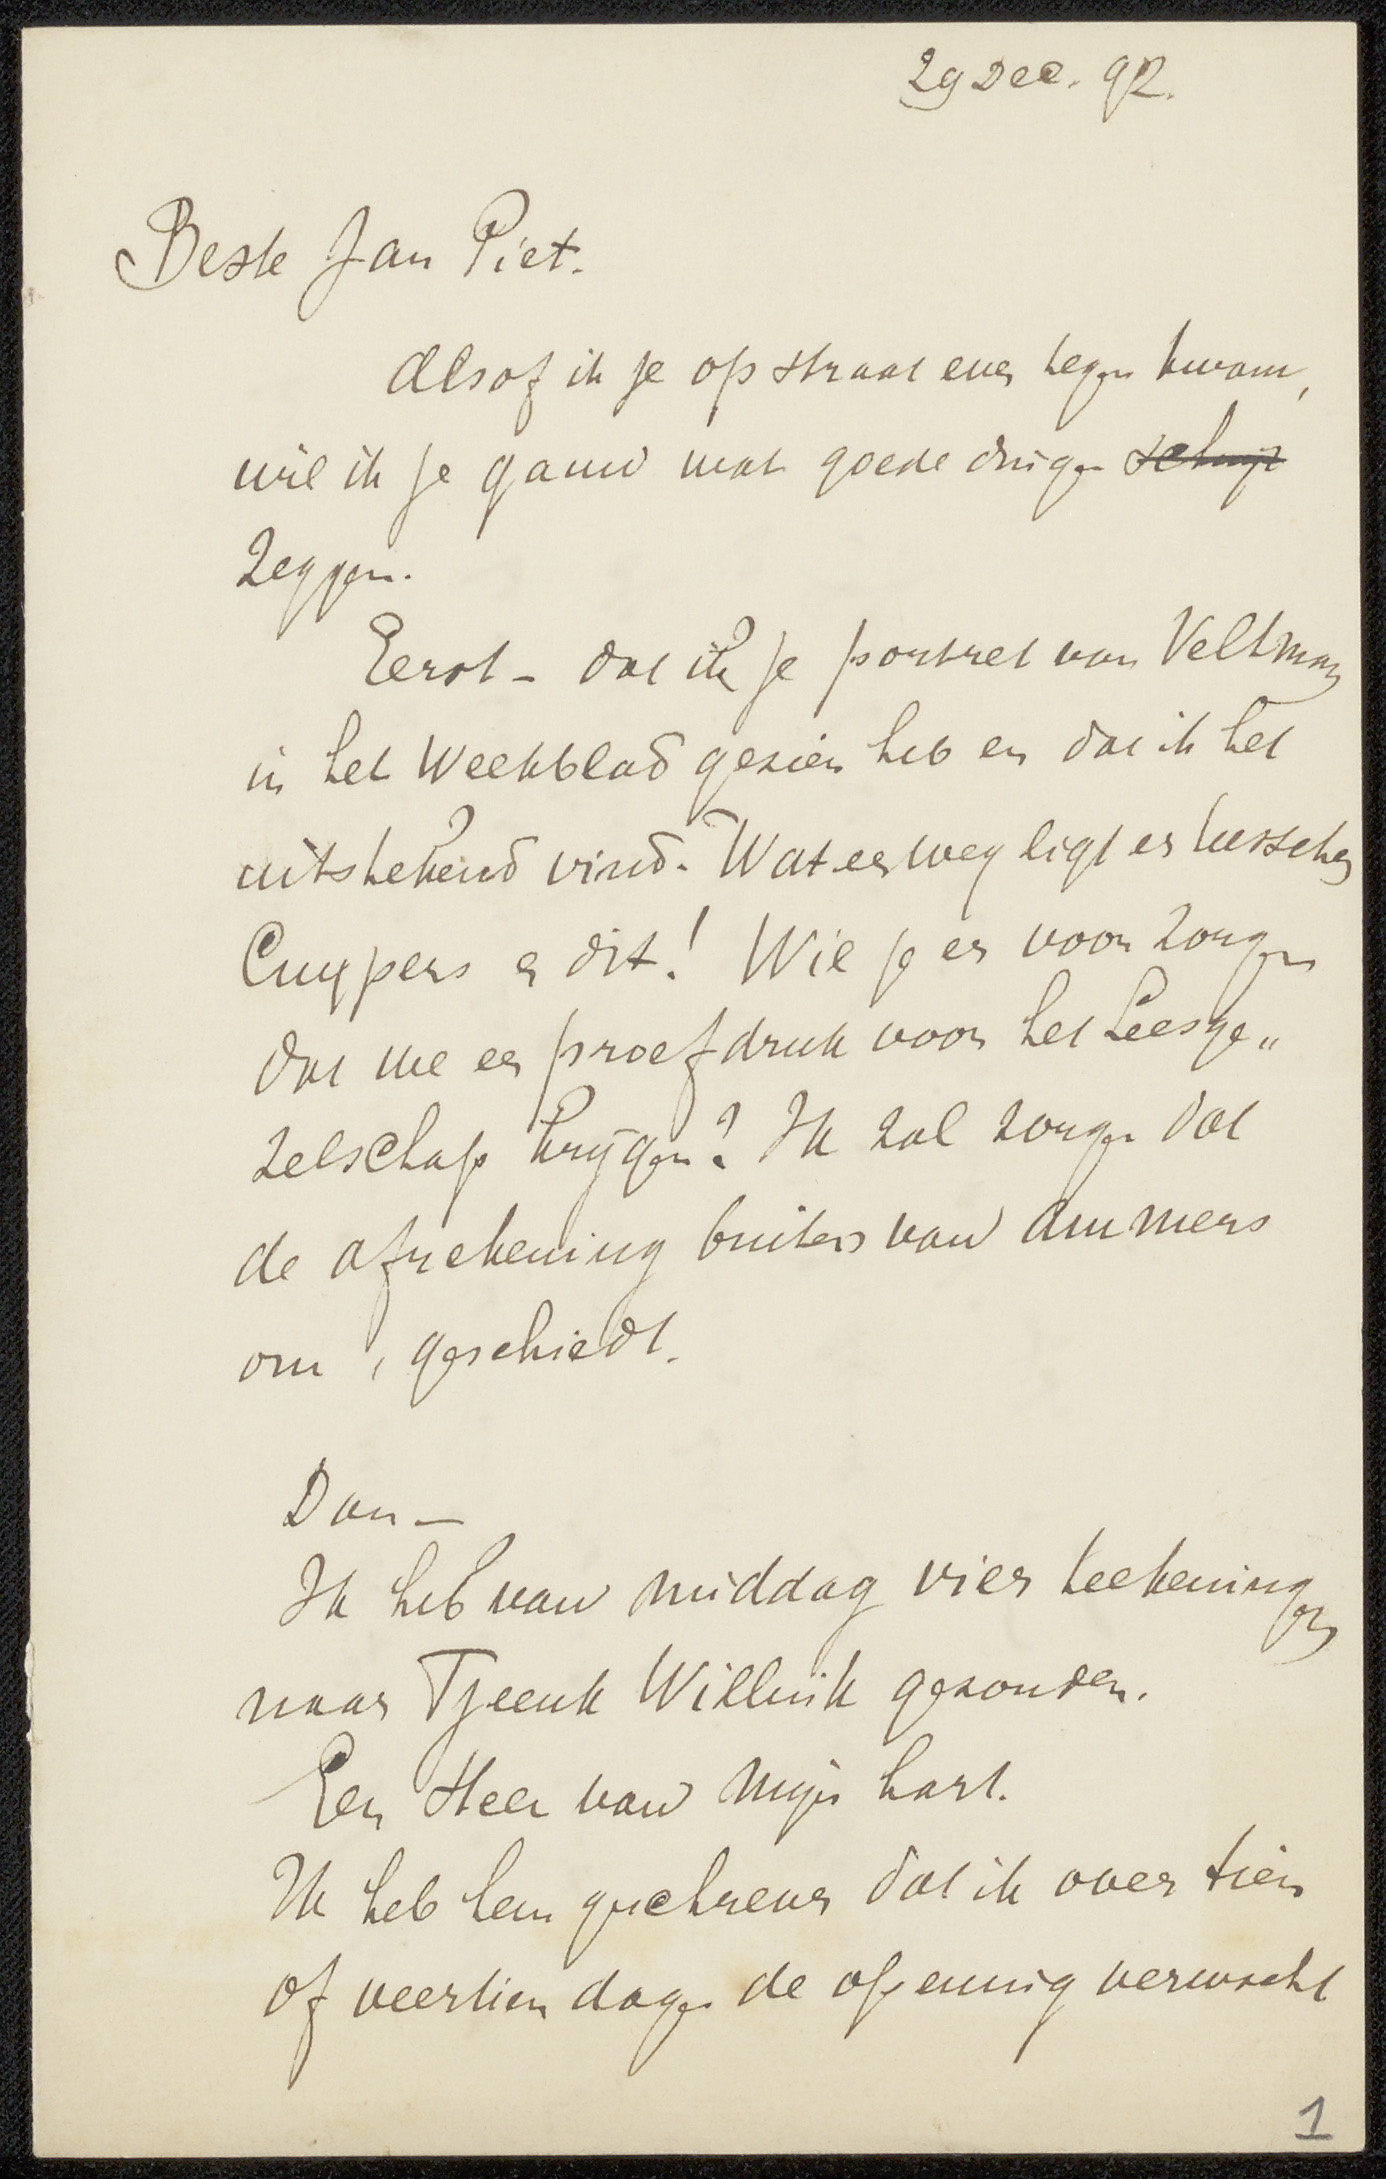 29 Dec. 92.
Beste Jan Piet.
Alsof ik je op straat even tegen kwam,
wil ik je gauw wat goede dingen schrijf
zeggen.
Eerst - dat ik je portret van Veltman
in het Weekblad gezien heb en dat ik het
uitstekend vind. Wat een weg ligt er tusschen
Cuypers en dit! Wil je er voor zorgen
dat we een proefdruk voor het Leesge„
zelschap krijgen? Ik zal zorgen dat
de afrekening buiten van Ammers
om, geschiedt.
Dan -
Ik heb van middag vier teekeningen
naar Tjeenk Willink gezonden.
Een steen van mijn hart.
Ik heb hem geschreven dat ik over tien
of veertien dagen de opening verwacht
1